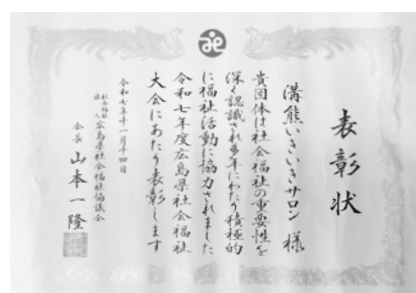 表彰状
溝熊いきいきサロン 様
貴団体は社会福祉の重要性を
深く認識され多年にわたり積極的
に福祉活動に協力されました
令和七年度広島県社会福祉
大会にあたり表彰します
令和七年十一月十四日
社会福祉法人 広島県社会福祉協議会
会長 山本一隆